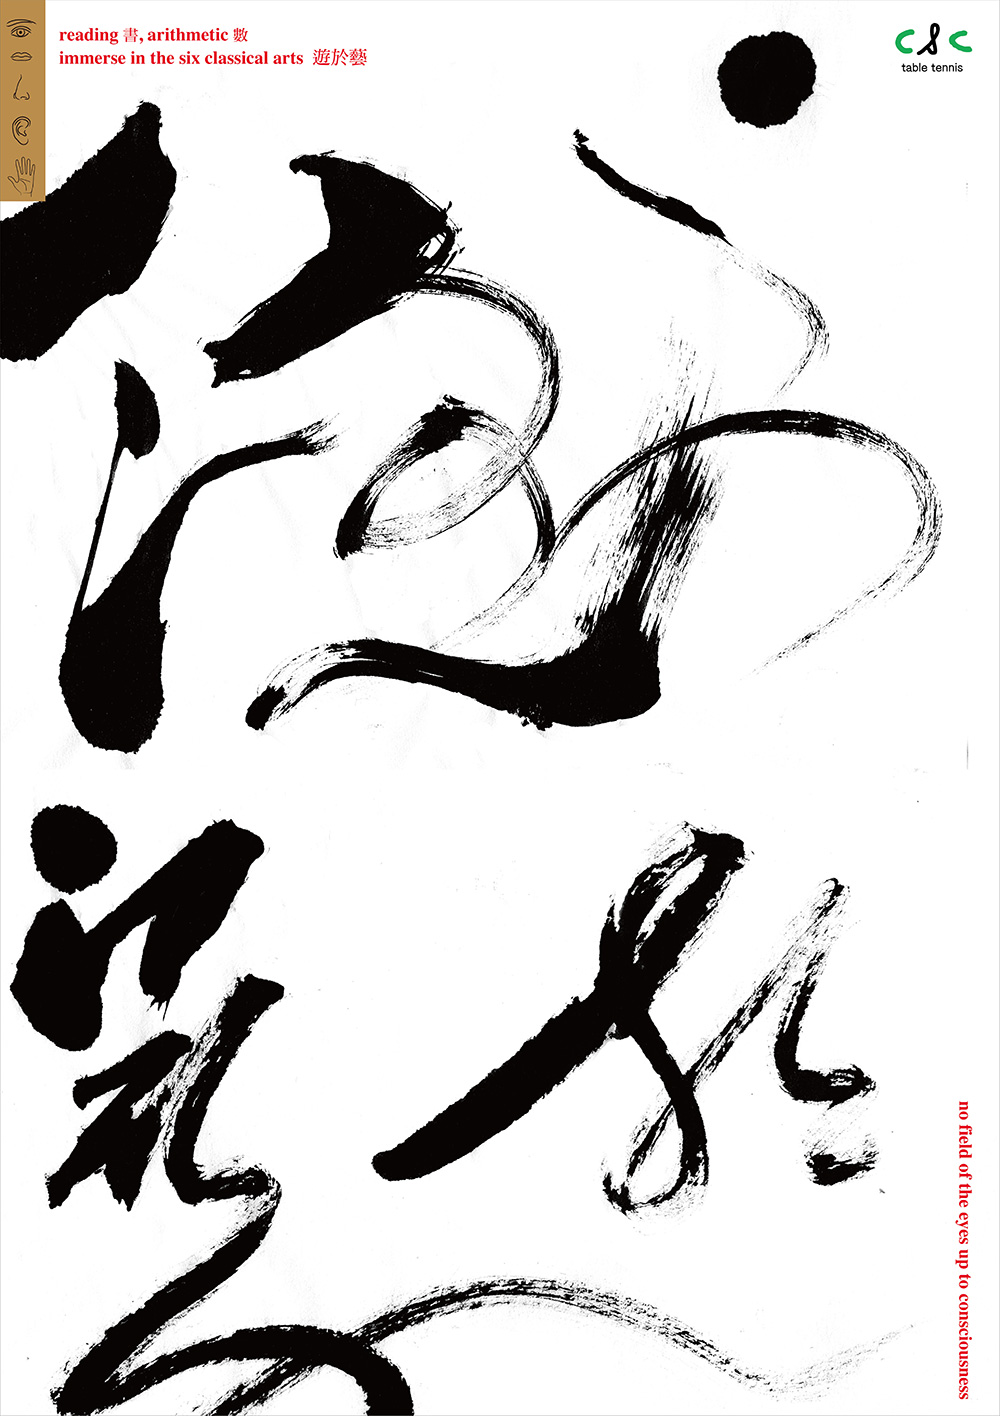 reading 書, arithmetic 數
immerse in the six classical arts 遊於藝
CSC
table tennis
遊
於
藝
no field of the eyes up to consciousness